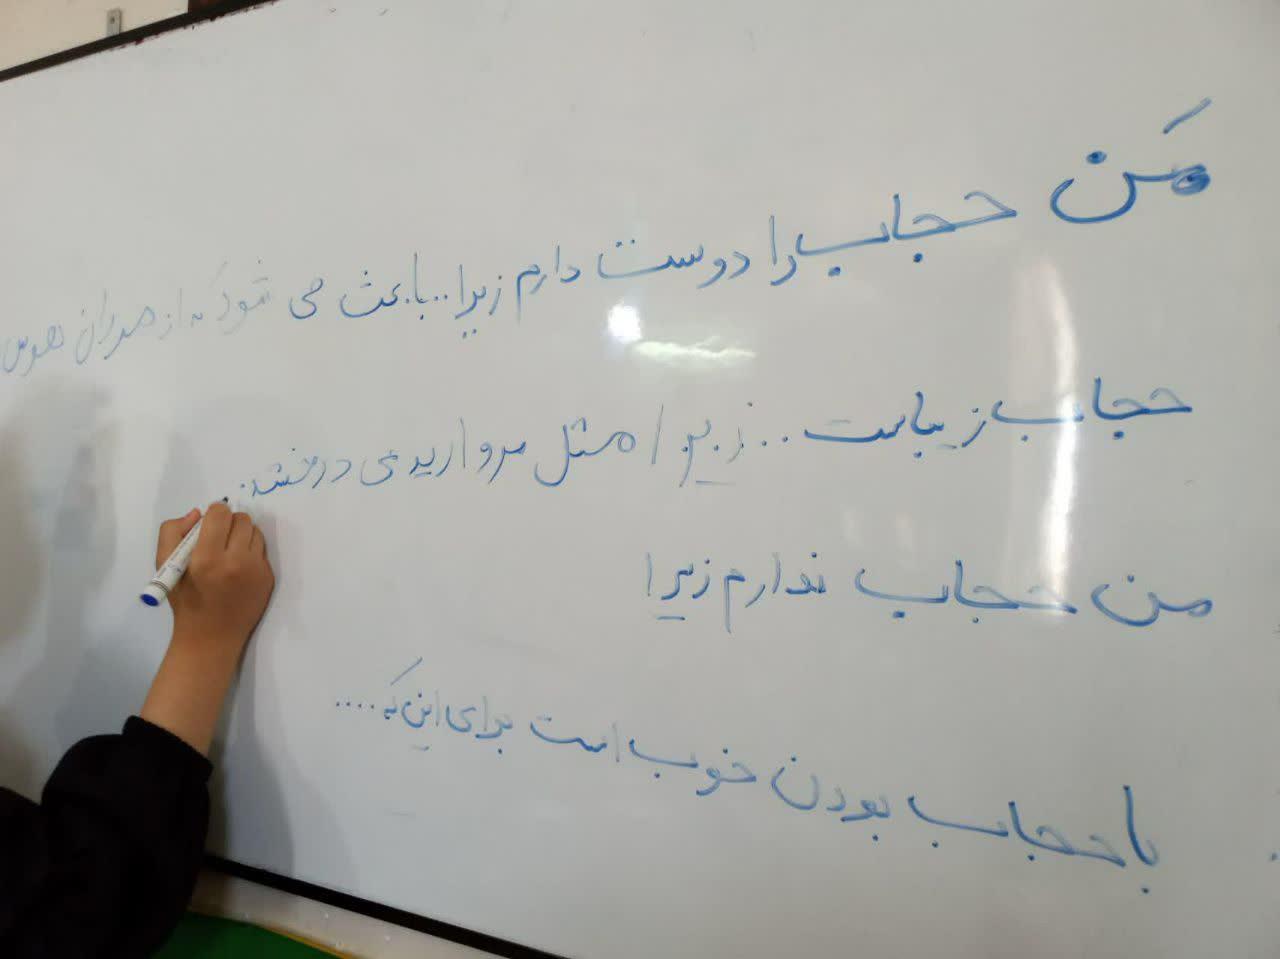 من حجاب را دوست دارم زیرا.. باعث می شود که از مردان هوس
حجاب زیباست... زیرا مثل مروارید می درخشد.
من حجاب ندارم زیرا
با حجاب بودن خوب است برای این که....